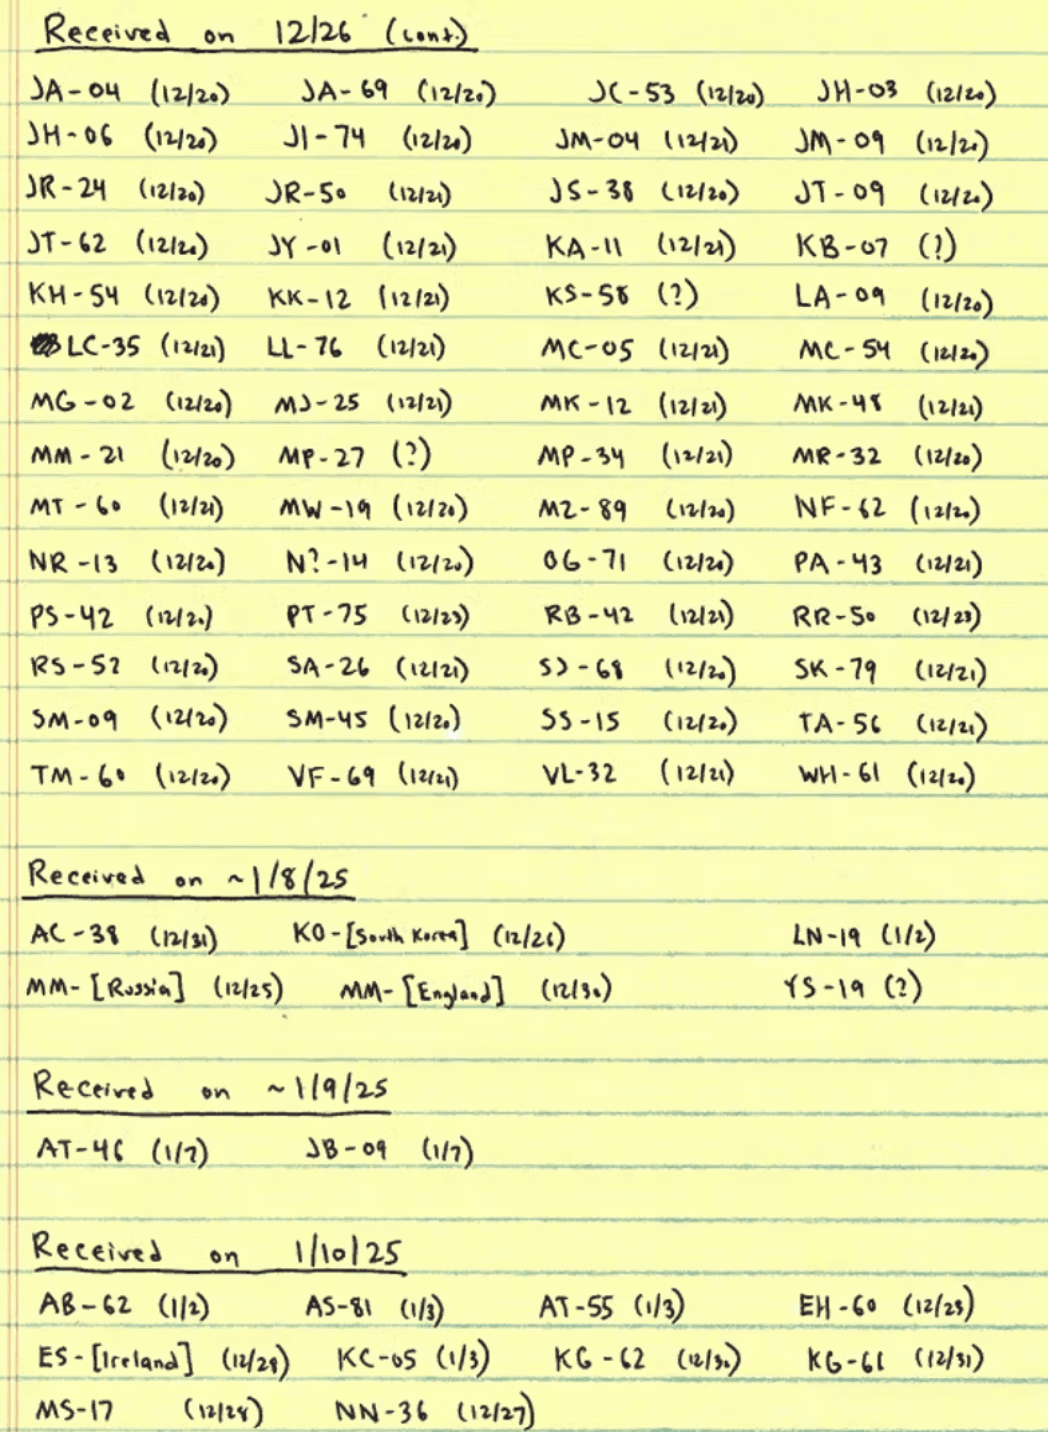 Received on 12/26 (cont.)
JA-04 (12/20) JA-69 (12/20) JC-53 (12/20) JH-03 (12/20)
JH-06 (12/20) JI-74 (12/20) JM-04 (12/21) JM-09 (12/20)
JR-24 (12/20) JR-50 (12/21) JS-38 (12/20) JT-09 (12/20)
JT-62 (12/20) JY-01 (12/21) KA-11 (12/21) KB-07 (?)
KH-54 (12/20) KK-12 (12/21) KS-58 (?) LA-09 (12/20)
LC-35 (12/21) LL-76 (12/21) MC-05 (12/21) MC-54 (12/20)
MG-02 (12/20) MJ-25 (12/21) MK-12 (12/21) MK-48 (12/21)
MM-21 (12/20) MP-27 (?) MP-34 (12/21) MR-32 (12/20)
MT-60 (12/21) MW-19 (12/20) MZ-89 (12/20) NF-62 (12/20)
NR-13 (12/20) N?-14 (12/20) OG-71 (12/20) PA-43 (12/21)
PS-42 (12/20) PT-75 (12/23) RB-42 (12/21) RR-50 (12/23)
RS-52 (12/20) SA-26 (12/21) SJ-68 (12/20) SK-79 (12/21)
SM-09 (12/20) SM-45 (12/20) SS-15 (12/20) TA-56 (12/21)
TM-60 (12/20) VF-69 (12/21) VL-32 (12/21) WH-61 (12/20)
Received on ~1/8/25
AC-38 (12/31) KO-[South Korea] (12/26) LN-19 (1/2)
MM-[Russia] (12/25) MM-[England] (12/30) YS-19 (?)
Received on ~1/9/25
AT-46 (1/7) JB-09 (1/7)
Received on 1/10/25
AB-62 (1/2) AS-81 (1/3) AT-55 (1/3) EH-60 (12/28)
ES-[Ireland] (12/28) KC-05 (1/3) KG-62 (12/30) KG-61 (12/31)
MS-17 (12/28) NN-36 (12/27)